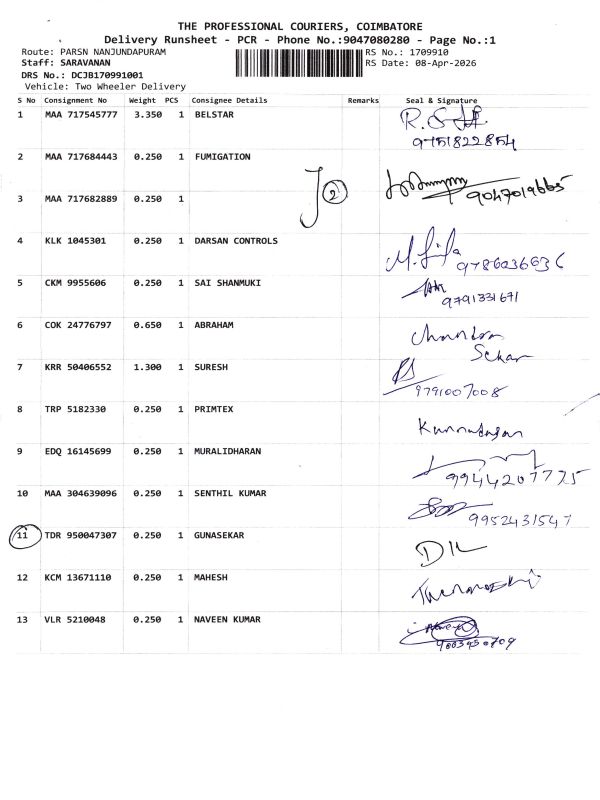 THE PROFESSIONAL COURIERS, COIMBATORE
Delivery Runsheet - PCR - Phone No.:9047080280 - Page No.:1
Route: PARSN NANJUNDAPURAM RS No.: 1709910
Staff: SARAVANAN RS Date: 08-Apr-2026
DRS No.: DCJB170991001
Vehicle: Two Wheeler Delivery
S No Consignment No Weight PCS Consignee Details Remarks Seal & Signature
1 MAA 717545777 3.350 1 BELSTAR
9751822854
2 MAA 717684443 0.250 1 FUMIGATION
3 MAA 717682889 0.250 1 2 9047019665
4 KLK 1045301 0.250 1 DARSAN CONTROLS
5 CKM 9955606 0.250 1 SAI SHANMUKI
9791331671
6 COK 24776797 0.650 1 ABRAHAM Chandra
Sekar
7 KRR 50406552 1.300 1 SURESH
9791007008
8 TRP 5182330 0.250 1 PRIMTEX
Kannadasan
9 EDQ 16145699 0.250 1 MURALIDHARAN
9944207775
10 MAA 304639096 0.250 1 SENTHIL KUMAR
9952431547
11 TDR 950047307 0.250 1 GUNASEKAR
12 KCM 13671110 0.250 1 MAHESH
13 VLR 5210048 0.250 1 NAVEEN KUMAR
9003930709